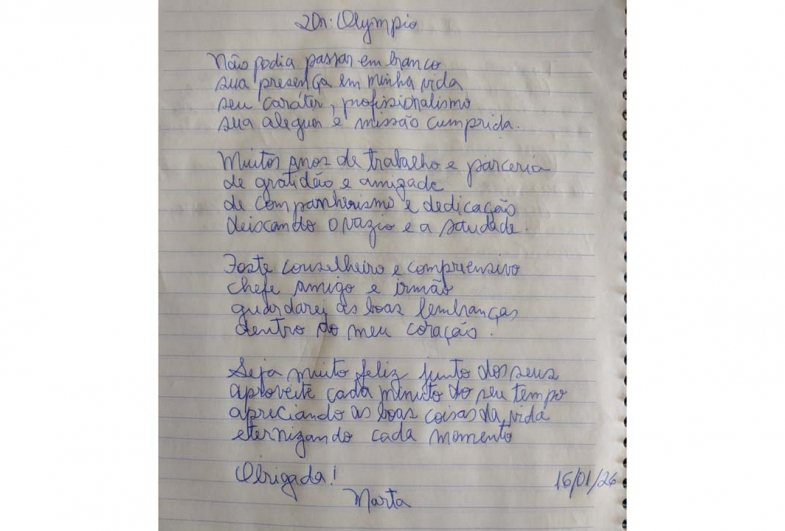 Dr: Olympio
Não podia passar em branco
sua presença em minha vida
seu caráter, profissionalismo
sua alegria e missão cumprida.
Muitos anos de trabalho e parceria
de gratidão e amizade
de companheirismo e dedicação
deixando o vazio e a saudade.
Foste conselheiro e compreensivo
chefe amigo e irmão
guardarei as boas lembranças
dentro do meu coração.
Seja muito feliz junto dos seus
aproveite cada minuto do seu tempo
apreciando as boas coisas da vida
eternizando cada momento
Obrigada!
16/01/26
Marta